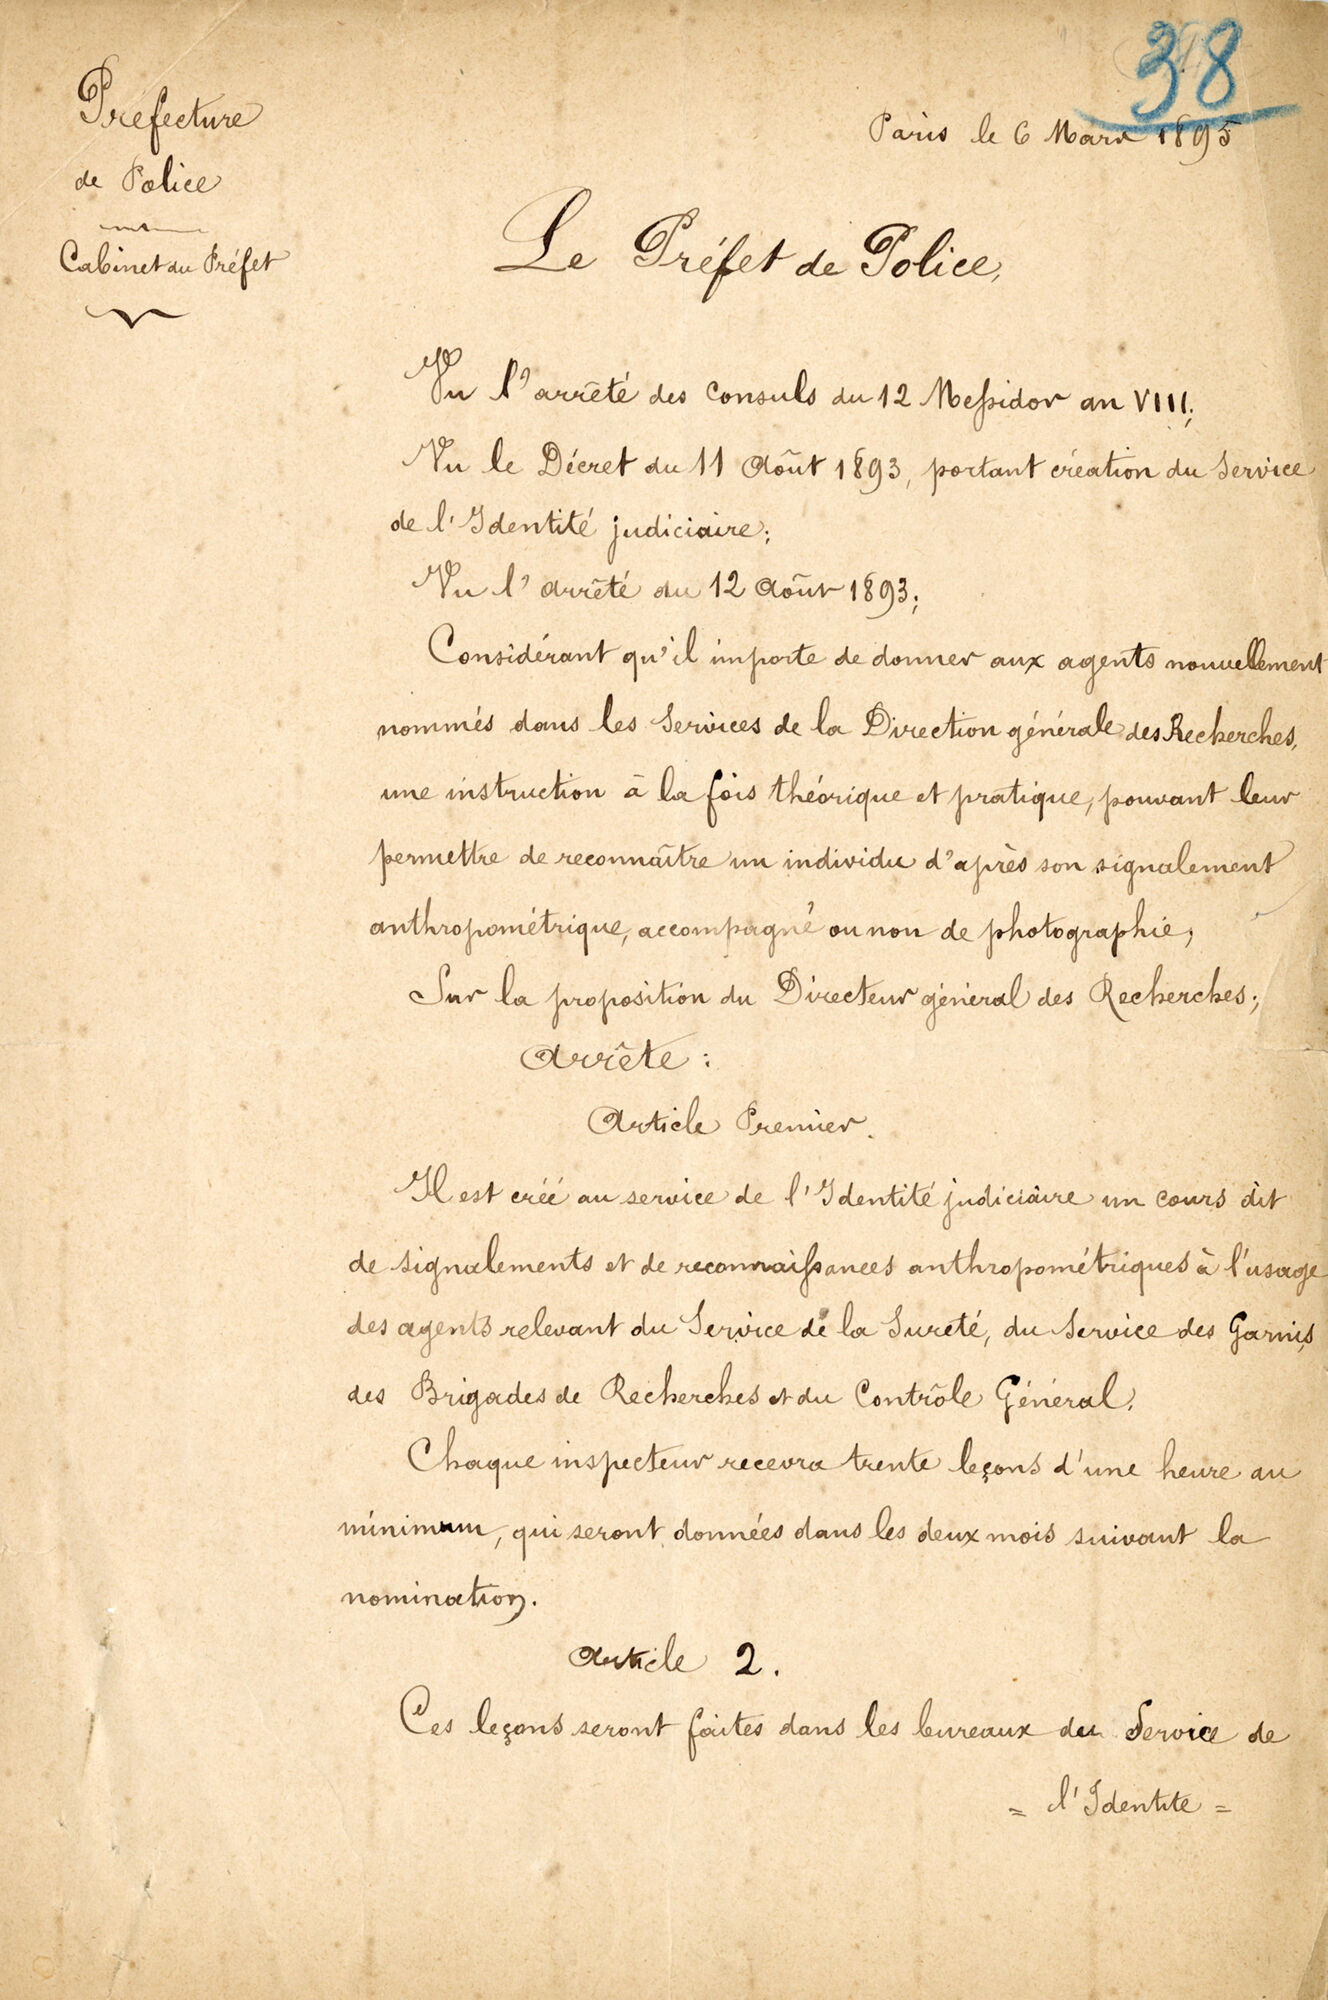 38
Préfecture
de Police
Cabinet du Préfet
Paris le 6 Mars 1895
Le Préfet de Police,
Vu l'arrêté des Consuls du 12 Messidor an VIII;
Vu le Décret du 11 Août 1893, portant création du Service
de l'Identité judiciaire;
Vu l'arrêté du 12 Août 1893;
Considérant qu'il importe de donner aux agents nouvellement
nommés dans les Services de la Direction générale des Recherches,
une instruction à la fois théorique et pratique, pouvant leur
permettre de reconnaître un individu d'après son signalement
anthropométrique, accompagné ou non de photographie;
Sur la proposition du Directeur général des Recherches;
Arrête:
Article Premier.
Il est créé au service de l'Identité judiciaire un cours dit
de signalements et de reconnaissances anthropométriques à l'usage
des agents relevant du Service de la Sureté, du Service des Garnis,
des Brigades de Recherches et du Contrôle Général.
Chaque inspecteur recevra trente leçons d'une heure au
minimum, qui seront données dans les deux mois suivant la
nomination.
Article 2.
Ces leçons seront faites dans les bureaux du Service de
= l'Identité =